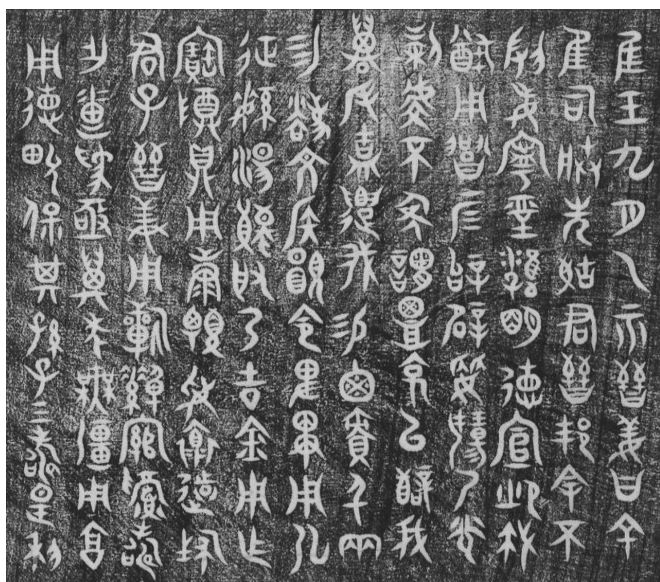 隹王九月乙亥晉姜曰余
隹司朕先姑君晉邦余不
叚妄寧巠雝明德宣𨙻我
猷用召匹辝辟敏揚氒光
剌虔不墜魯覃京𠂤辥我
萬民嘉遣我易鹵責千兩
勿灋文侯顯令卑貫通弘
征繁湯取氒吉金用乍
寶尊鼎用康柔妥褱遠邇
君子晉姜用旂綽綰眉壽
乍疐爲亟萬年無疆用享
用德畯保其孫子三壽是利